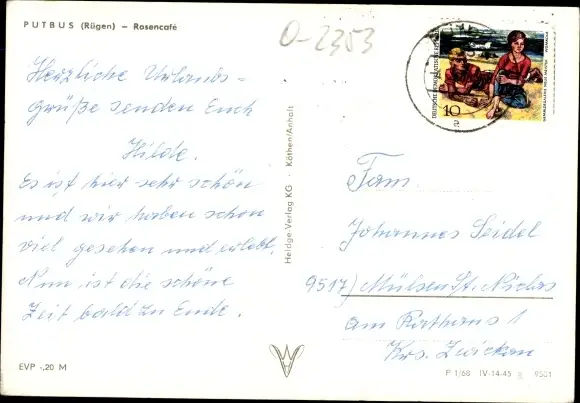 PUTBUS (Rügen) – Rosencafé
O-2353
Herzliche Urlaubs=
grüße senden Euch
Hilde.
Es ist hier sehr schön
und wir haben schon
viel gesehen und erlebt.
Nun ist die schöne
Zeit bald zu Ende.
EVP -,20 M
Heldge-Verlag KG · Köthen/Anhalt
10
Fam.
Johannes Seidel
9517) Mülsen St. Niclas
am Rathaus 1
Krs. Zwickau
P 1/68 IV-14-45 9501